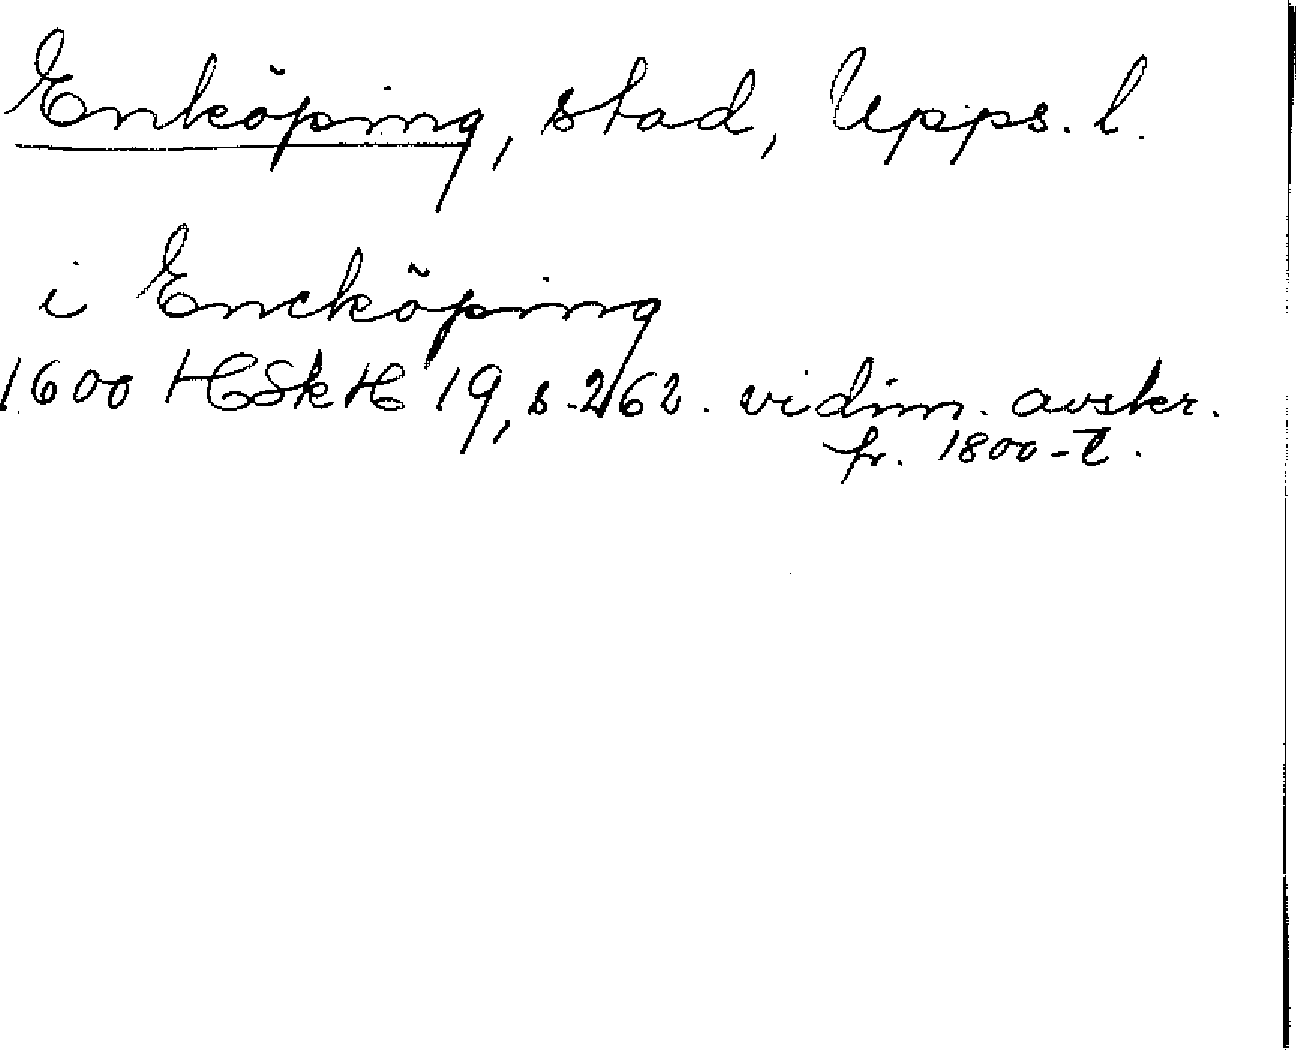 Enköping, stad, Upps. l.
i Encköping
1600 HSkH 19, s. 262. vidim. avskr.
fr. 1800-t.